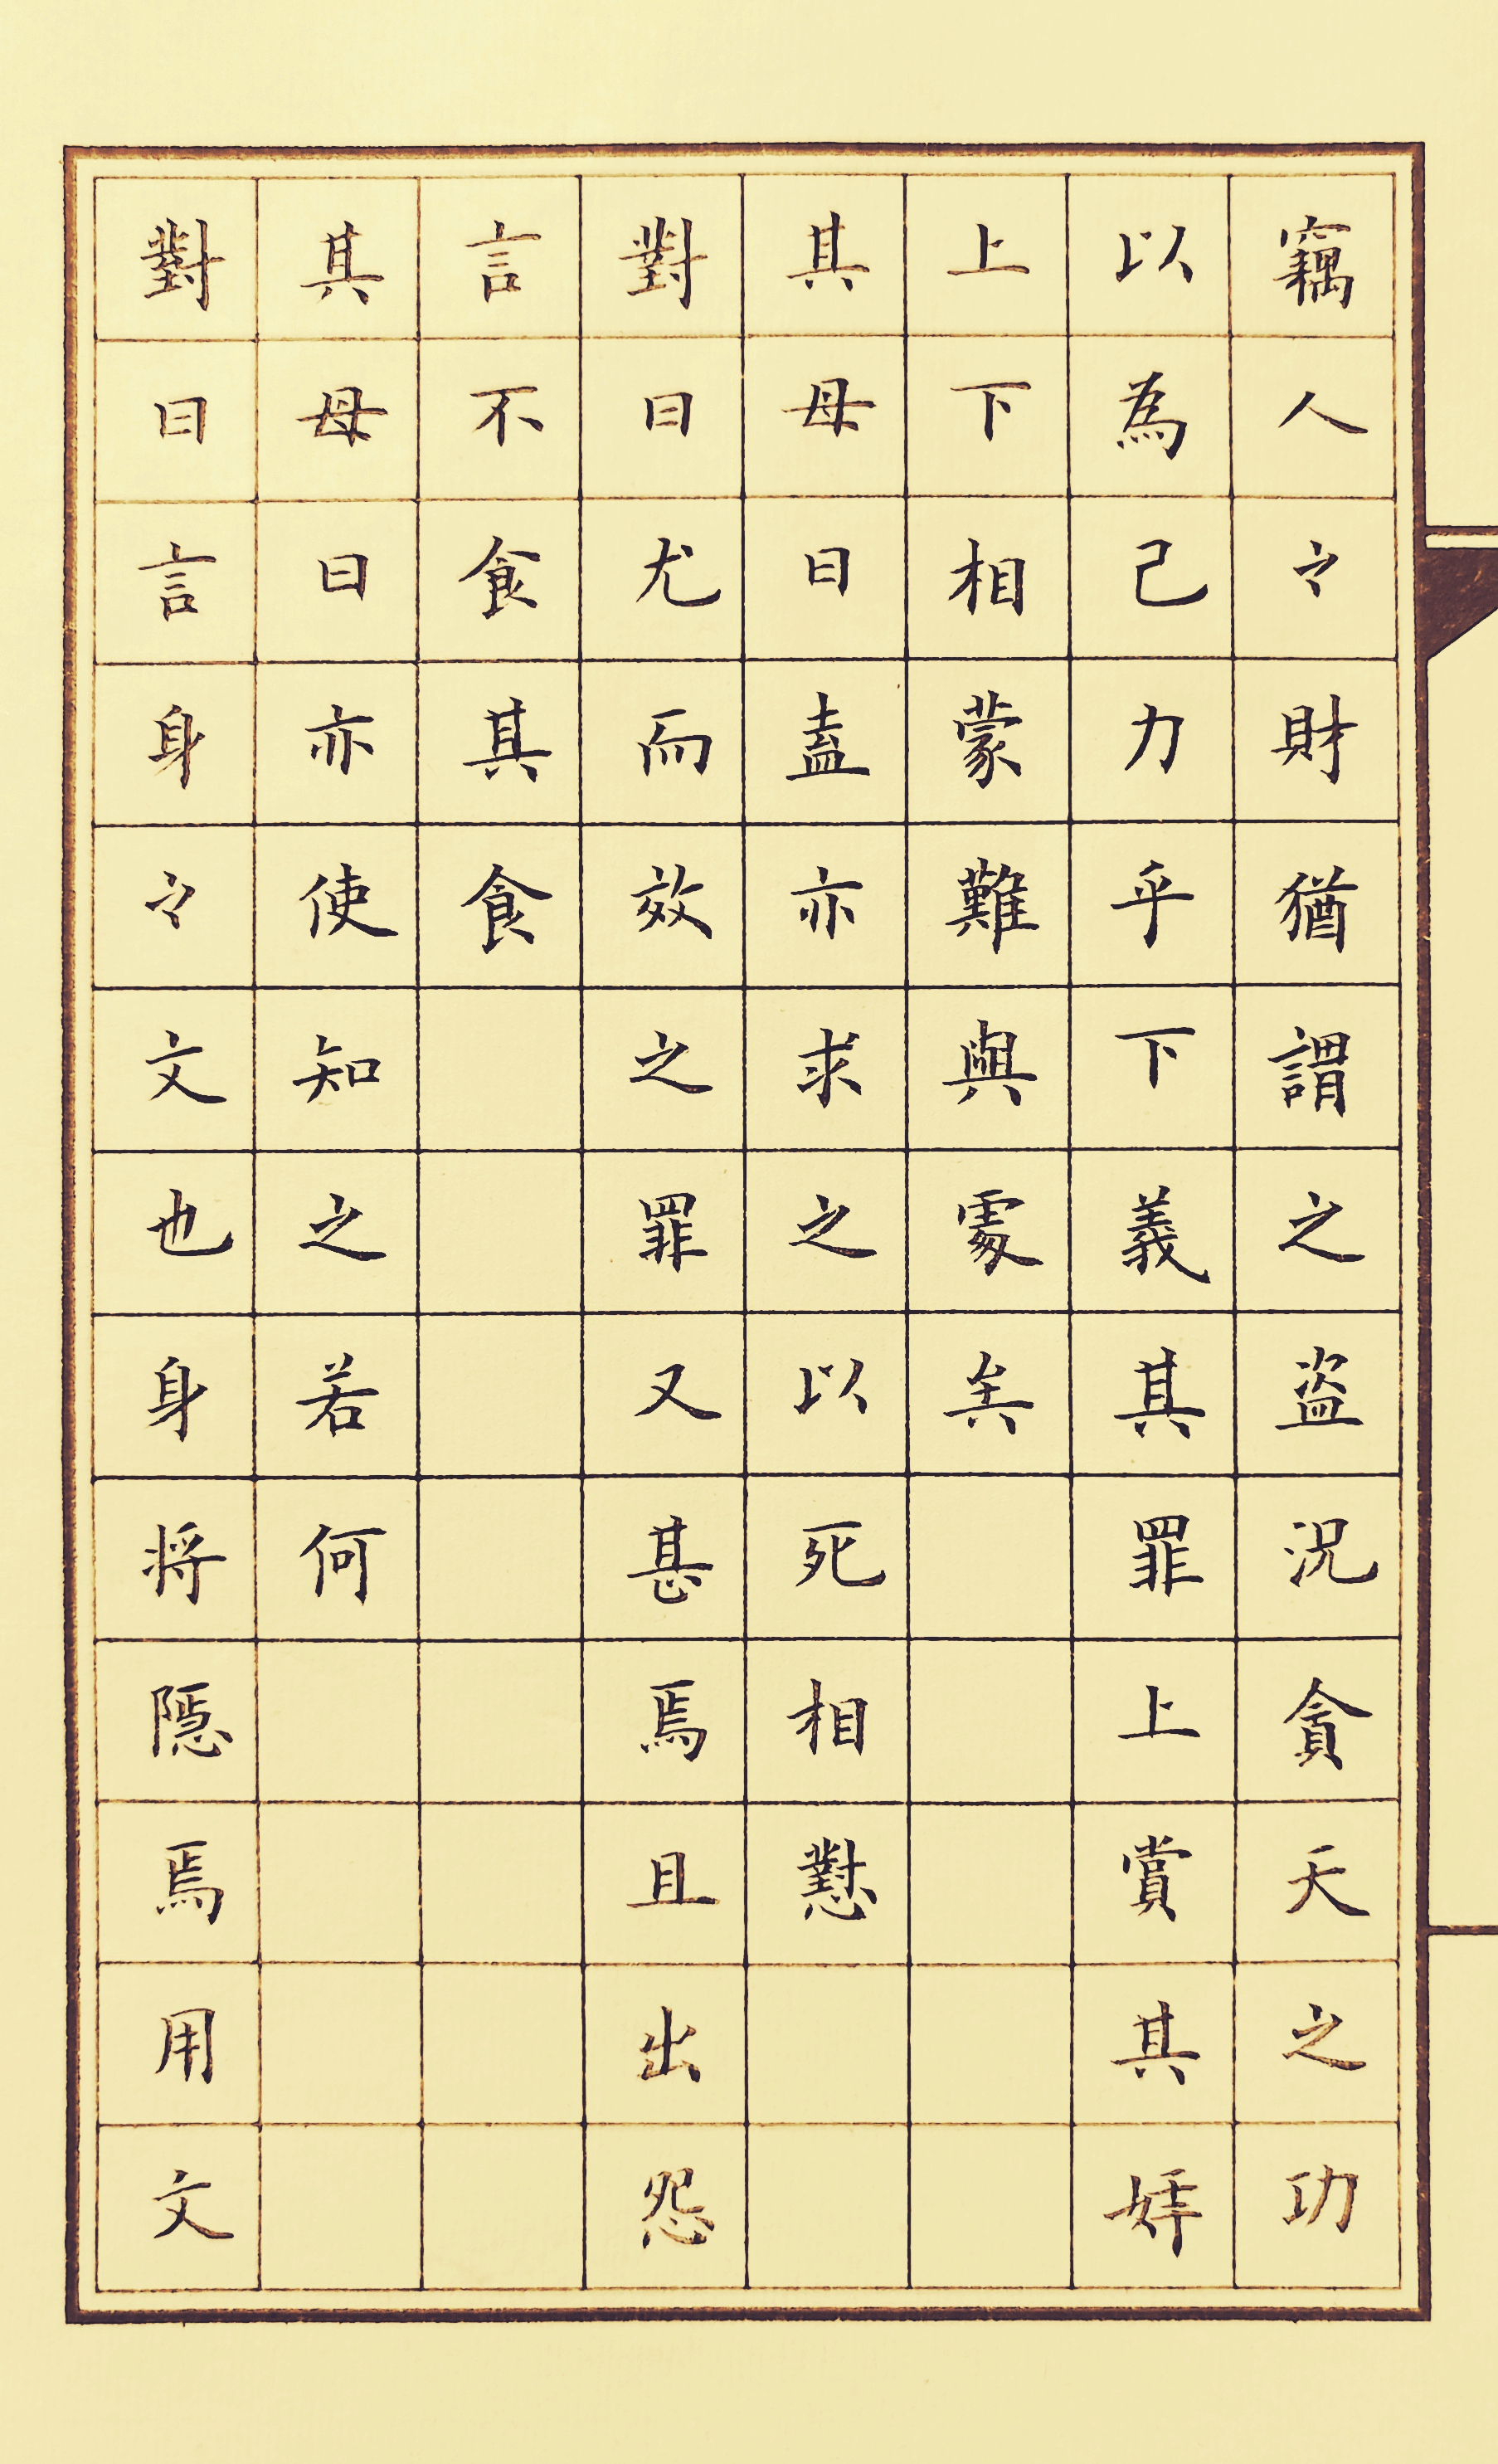 竊人々財猶謂之盗況貪天之功
以為己力乎下義其罪上賞其姧
上下相蒙難與處矣
其母曰盍亦求之以死相懟
對曰尤而效之罪又甚焉且出怨
言不食其食
其母曰亦使知之若何
對曰言身々文也身将隱焉用文